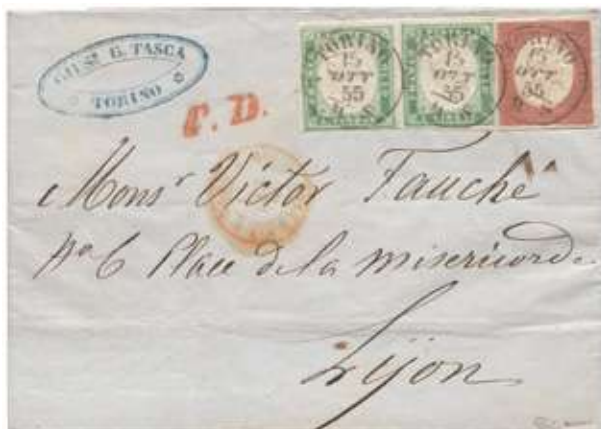 GIUSE. G. TASCA
TORINO
P. D.
TORINO
15
OTT
55
TORINO
15
OTT
55
TORINO
15
OTT
55
Monsr Victor Fauché
No 6 Place de la misericorde
Lyon